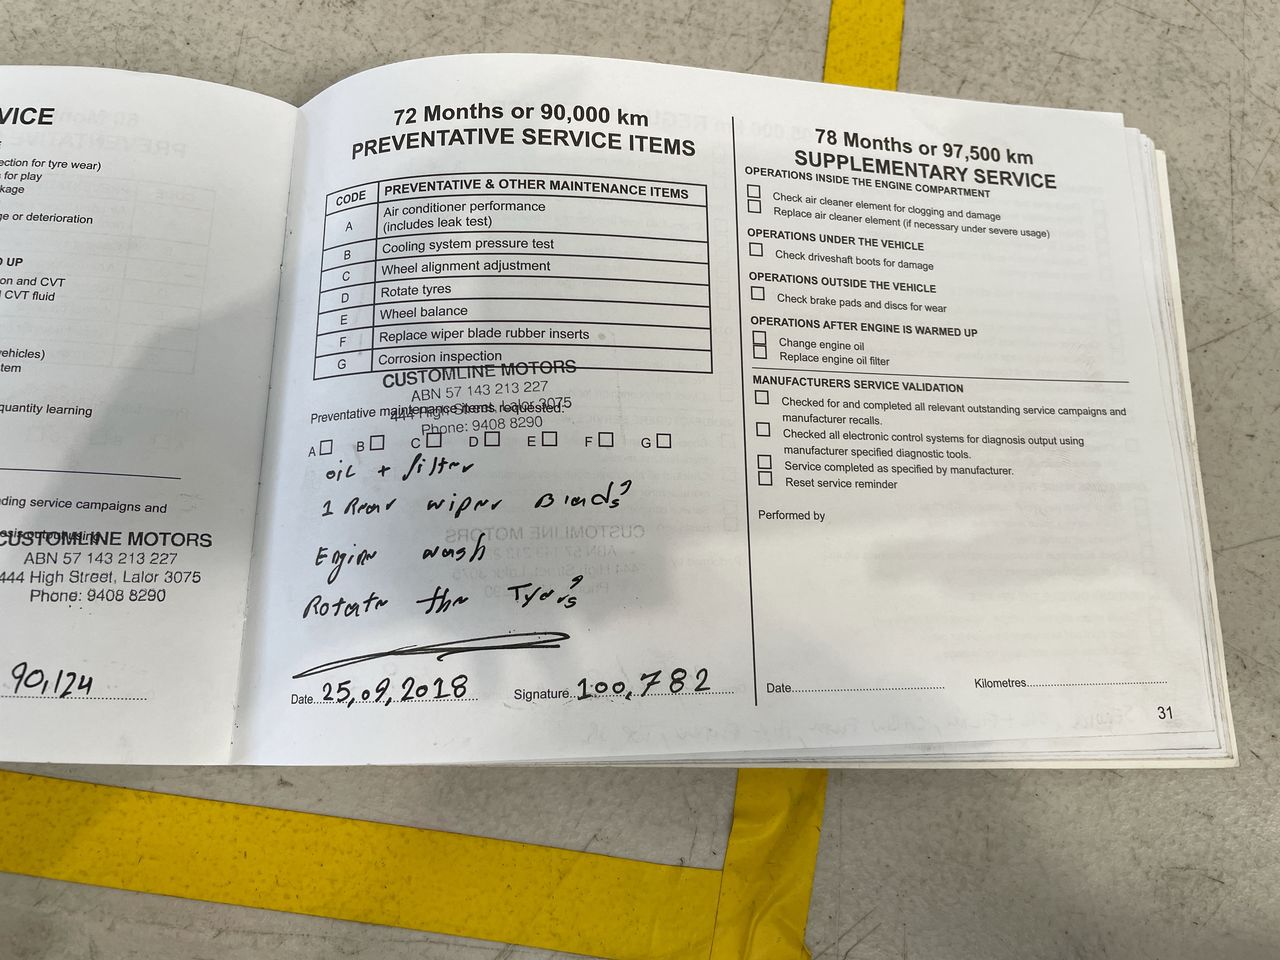 VICE
ection for tyre wear)
for play
kage
ge or deterioration
D UP
on and CVT
CVT fluid
vehicles)
tem
quantity learning
ding service campaigns and
CUSTOMLINE MOTORS
ABN 57 143 213 227
444 High Street, Lalor 3075
Phone: 9408 8290
90,124
72 Months or 90,000 km
PREVENTATIVE SERVICE ITEMS
CODE PREVENTATIVE & OTHER MAINTENANCE ITEMS
A Air conditioner performance
(includes leak test)
B Cooling system pressure test
C Wheel alignment adjustment
D Rotate tyres
E Wheel balance
F Replace wiper blade rubber inserts
G Corrosion inspection
CUSTOMLINE MOTORS
ABN 57 143 213 227
Preventative maintenance items requested:
444 High Street, Lalor 3075
Phone: 9408 8290
A B C D E F G
oil + filter
1 Rear wiper
Engine wash
Rotate the
Date 25,09,2018 Signature 100,782
78 Months or 97,500 km
SUPPLEMENTARY SERVICE
OPERATIONS INSIDE THE ENGINE COMPARTMENT
Check air cleaner element for clogging and damage
Replace air cleaner element (if necessary under severe usage)
OPERATIONS UNDER THE VEHICLE
Check driveshaft boots for damage
OPERATIONS OUTSIDE THE VEHICLE
Check brake pads and discs for wear
OPERATIONS AFTER ENGINE IS WARMED UP
Change engine oil
Replace engine oil filter
MANUFACTURERS SERVICE VALIDATION
Checked for and completed all relevant outstanding service campaigns and
manufacturer recalls.
Checked all electronic control systems for diagnosis output using
manufacturer specified diagnostic tools.
Service completed as specified by manufacturer.
Reset service reminder
Performed by
Date Kilometres
31